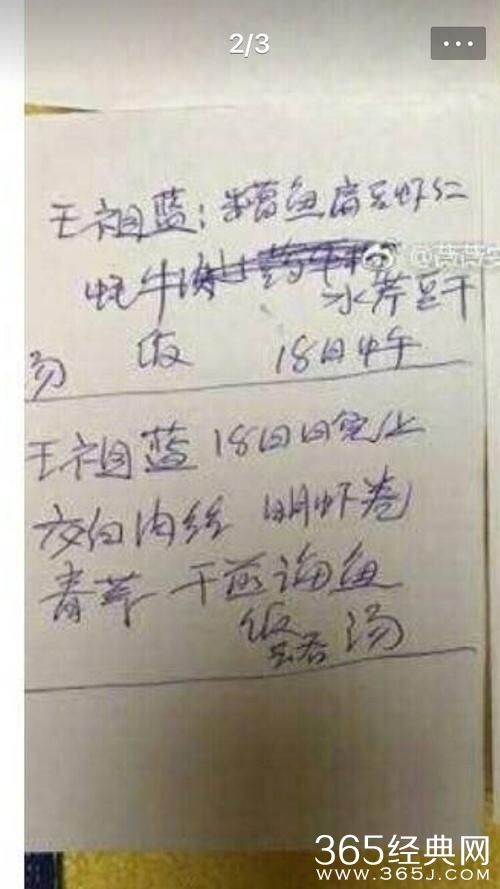 2/3
王祖蓝：糟鱼腐豆虾仁
@蓓蓓
牛
水芹豆干
汤 饭 18日中午
王祖蓝 18日日晚上
交白肉丝 明虾卷
青菜 干煎 鱼
饭 汤
365经典网
WWW.365J.COM